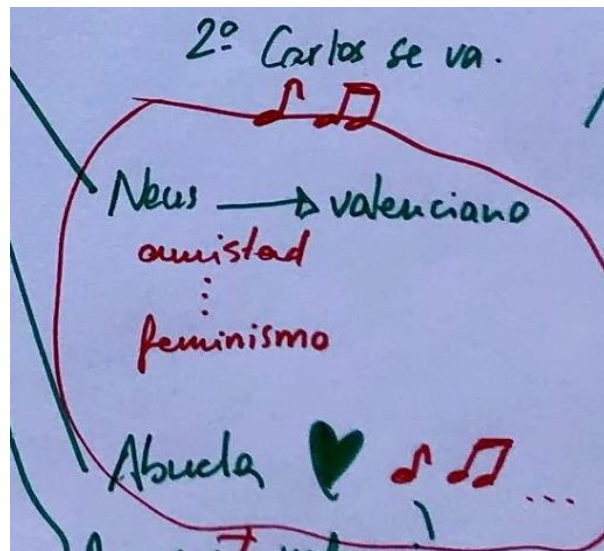 2º Carlos se va.
Neus → valenciano
amistad
⋮
feminismo
Abuela ♥ ♪ ♫ ...